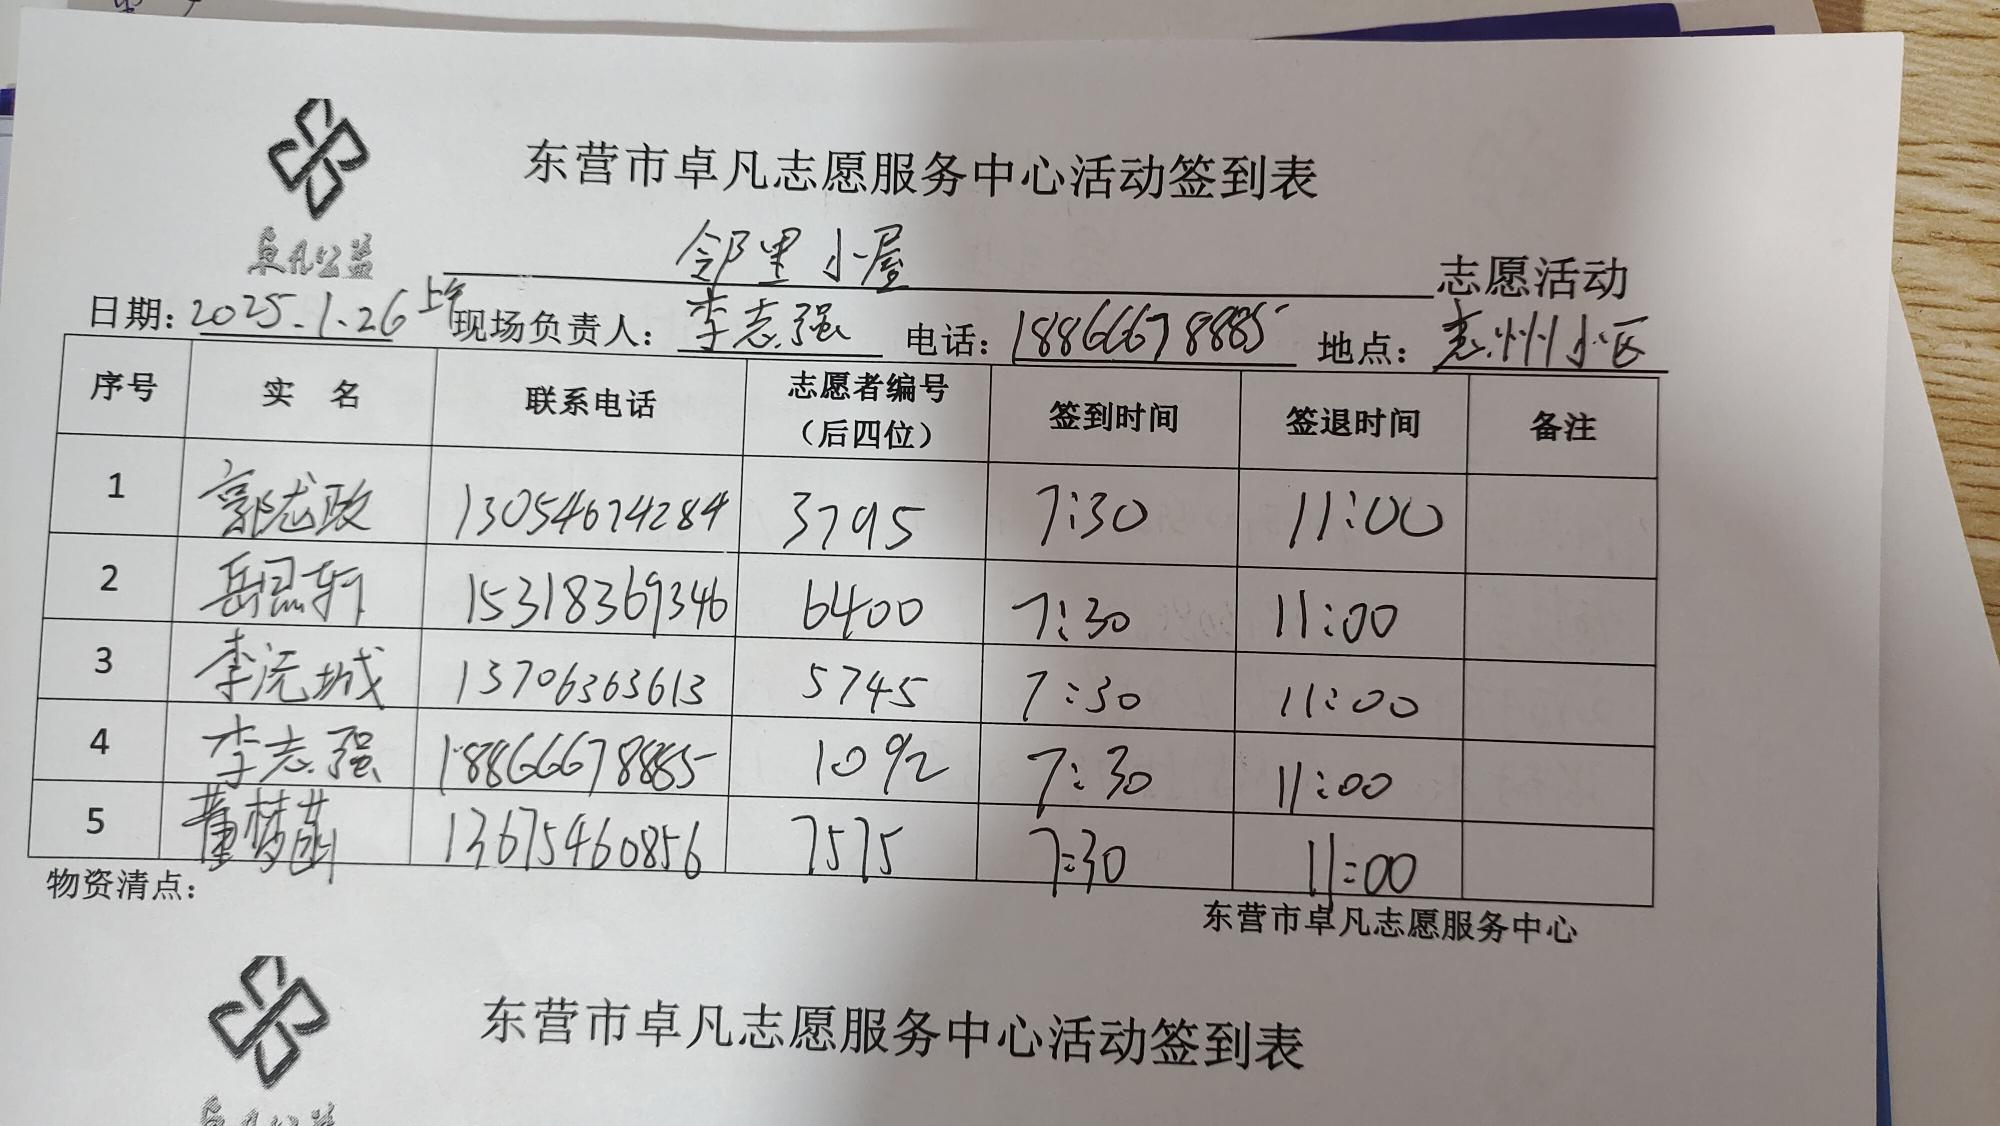 东营市卓凡志愿服务中心活动签到表
卓凡公益
邻里小屋 志愿活动
日期：2025.1.26上午 现场负责人：李志强 电话：18866678885 地点：惠州小区
序号 实 名 联系电话 志愿者编号（后四位） 签到时间 签退时间 备注
1 郭龙政 13054674284 3795 7:30 11:00
2 岳昆轩 15318369346 6400 7:30 11:00
3 李沅城 13706363613 5745 7:30 11:00
4 李志强 18866678885 1092 7:30 11:00
5 董梦菡 13675460856 7575 7:30 11:00
物资清点：
东营市卓凡志愿服务中心
东营市卓凡志愿服务中心活动签到表